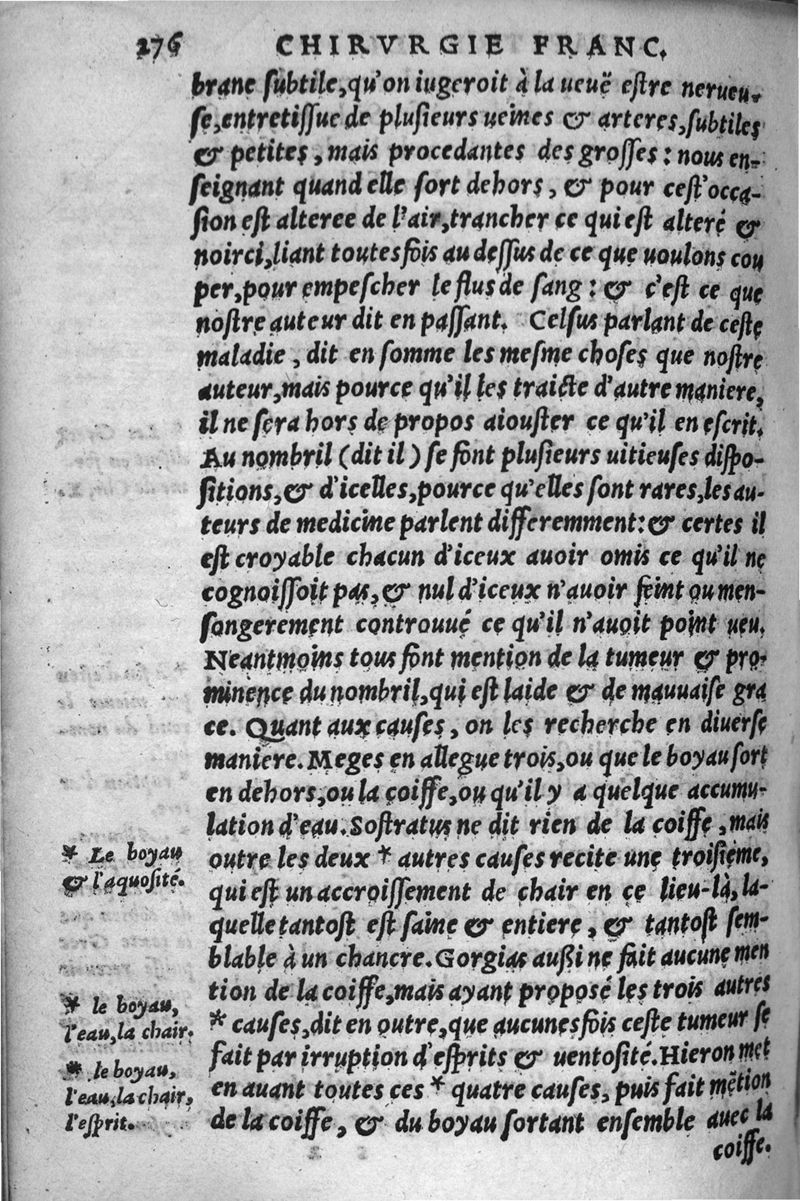 276 CHIRVRGIE FRANC.
brane ſubtile,qu'on iugeroit à la ueuë eſtre nerueu-
ſe,entretiſſue de pluſieurs ueines & arteres,ſubtiles
& petites, mais procedantes des groſſes: nous en-
ſeignant quand elle ſort dehors, & pour ceſt'occa-
ſion eſt alteree de l'air,trancher ce qui eſt alteré &
noirci,liant toutesfois au deſſus de ce que uoulons cou
per,pour empeſcher le flus de ſang: & c'eſt ce que
noſtre auteur dit en paſſant. Celſus parlant de ceſte
maladie, dit en ſomme les meſme choſes que noſtre
auteur,mais pource qu'il les traicte d'autre maniere,
il ne ſera hors de propos aiouſter ce qu'il en eſcrit.
Au nombril (dit il) ſe font pluſieurs uitieuſes diſpo-
ſitions,& d'icelles,pource qu'elles ſont rares,les au-
teurs de medicine parlent differemment:& certes il
eſt croyable chacun d'iceux auoir omis ce qu'il ne
cognoiſſoit pas,& nul d'iceux n'auoir feint ou men-
ſongerement controuué ce qu'il n'auoit point ueu.
Neantmoins tous font mention de la tumeur & pro-
minence du nombril,qui eſt laide & de mauuaiſe gra
ce. Quant aux cauſes, on les recherche en diuerſe
maniere. Meges en allegue trois,ou que le boyau ſort
en dehors,ou la coiffe,ou qu'il y a quelque accumu-
lation d'eau. Soſtratus ne dit rien de la coiffe, mais
outre les deux * autres cauſes recite une troiſieme,
qui eſt un accroiſſement de chair en ce lieu-là, la-
quelle tantoſt eſt ſaine & entiere, & tantoſt ſem-
blable à un chancre. Gorgias außi ne fait aucune men
tion de la coiffe,mais ayant propoſé les trois autres
* cauſes,dit en outre,que aucunesfois ceſte tumeur ſe
fait par irruption d'eſprits & uentoſité. Hieron met
en auant toutes ces * quatre cauſes, puis fait mētion
de la coiffe, & du boyau ſortant enſemble auec la
coiffe.
* Le boyau
& l'aquoſité.
* le boyau,
l'eau,la chair.
* le boyau,
l'eau,la chair,
l'eſprit.